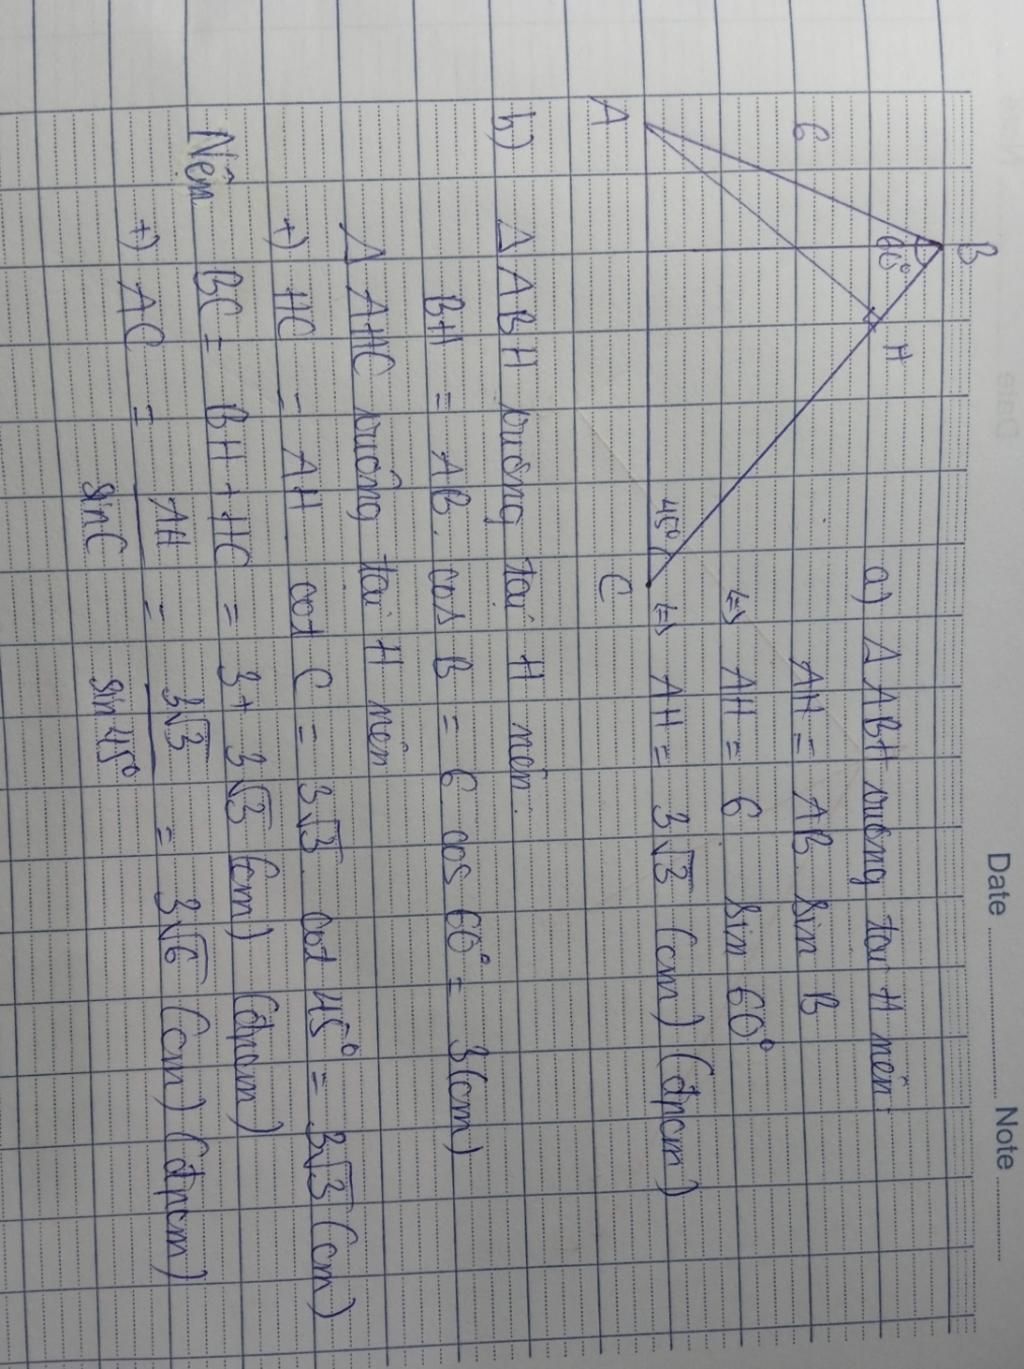 Date Note
B
6
60°
H
A
45°
C
a) Δ ABH vuông tại H nên:
AH = AB sin B
<=> AH = 6 sin 60°
<=> AH = 3√3 (cm) (đpcm)
b) Δ ABH vuông tại H nên:
BH = AB. cos B = 6 cos 60° = 3(cm)
Δ AHC vuông tại H nên
+) HC = AH cot C = 3√3. cot 45° = 3√3 (cm)
Nên BC = BH + HC = 3 + 3√3 (cm) (đpcm)
+) AC = AH / sin C = 3√3 / sin 45° = 3√6 (cm) (đpcm)